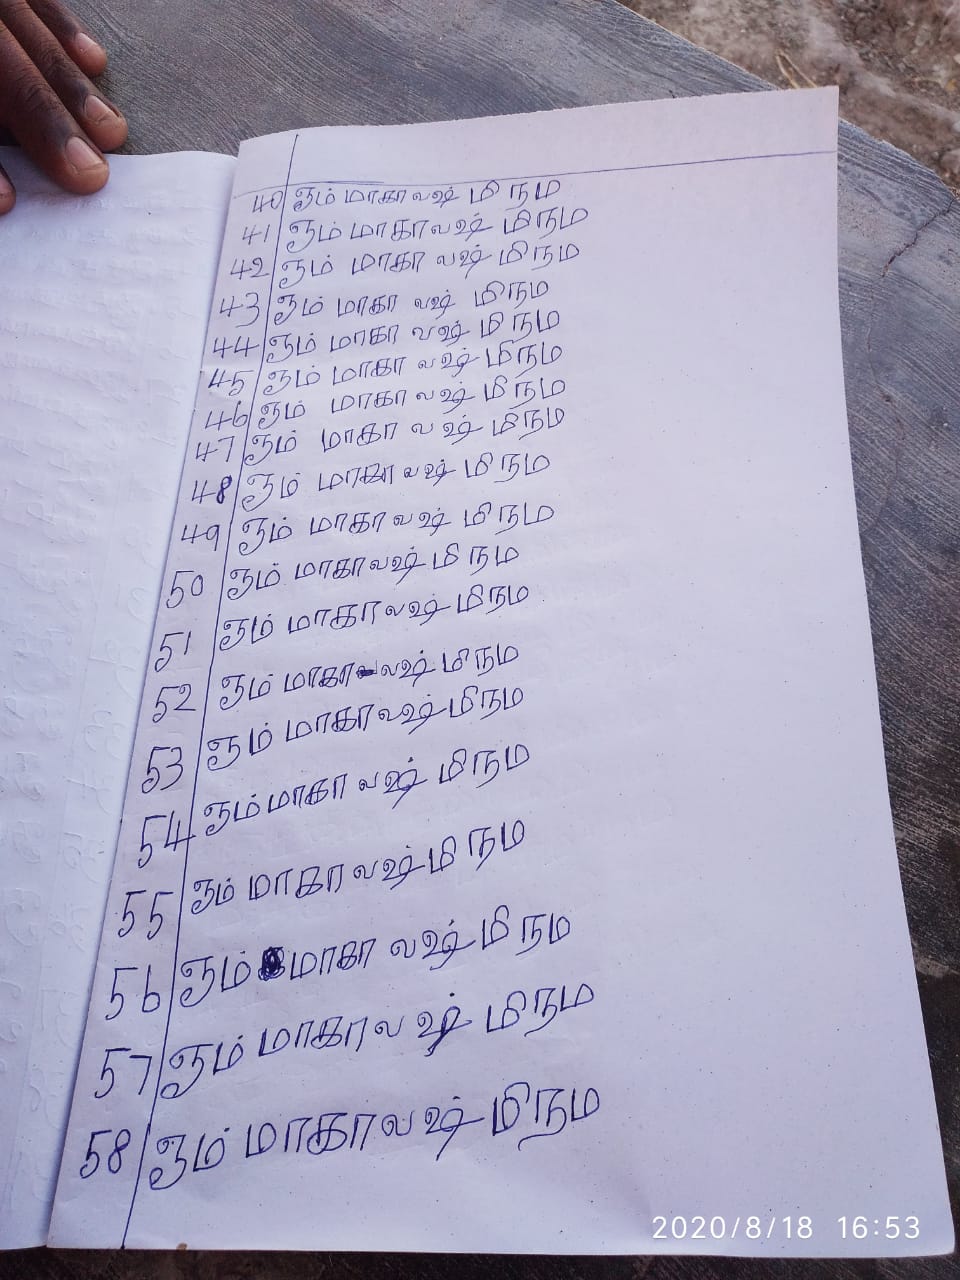 40 ஓம் மாகா லஷ் மி நம
41 ஓம் மாகா லஷ் மி நம
42 ஓம் மாகா லஷ் மி நம
43 ஓம் மாகா லஷ் மி நம
44 ஓம் மாகா லஷ் மி நம
45 ஓம் மாகா லஷ் மி நம
46 ஓம் மாகா லஷ் மி நம
47 ஓம் மாகா லஷ் மி நம
48 ஓம் மாகா லஷ் மி நம
49 ஓம் மாகா லஷ் மி நம
50 ஓம் மாகா லஷ் மி நம
51 ஓம் மாகா லஷ் மி நம
52 ஓம் மாகா லஷ் மி நம
53 ஓம் மாகா லஷ் மி நம
54 ஓம் மாகா லஷ் மி நம
55 ஓம் மாகா லஷ் மி நம
56 ஓம் மாகா லஷ் மி நம
57 ஓம் மாகா லஷ் மி நம
58 ஓம் மாகா லஷ் மி நம
2020/8/18 16:53